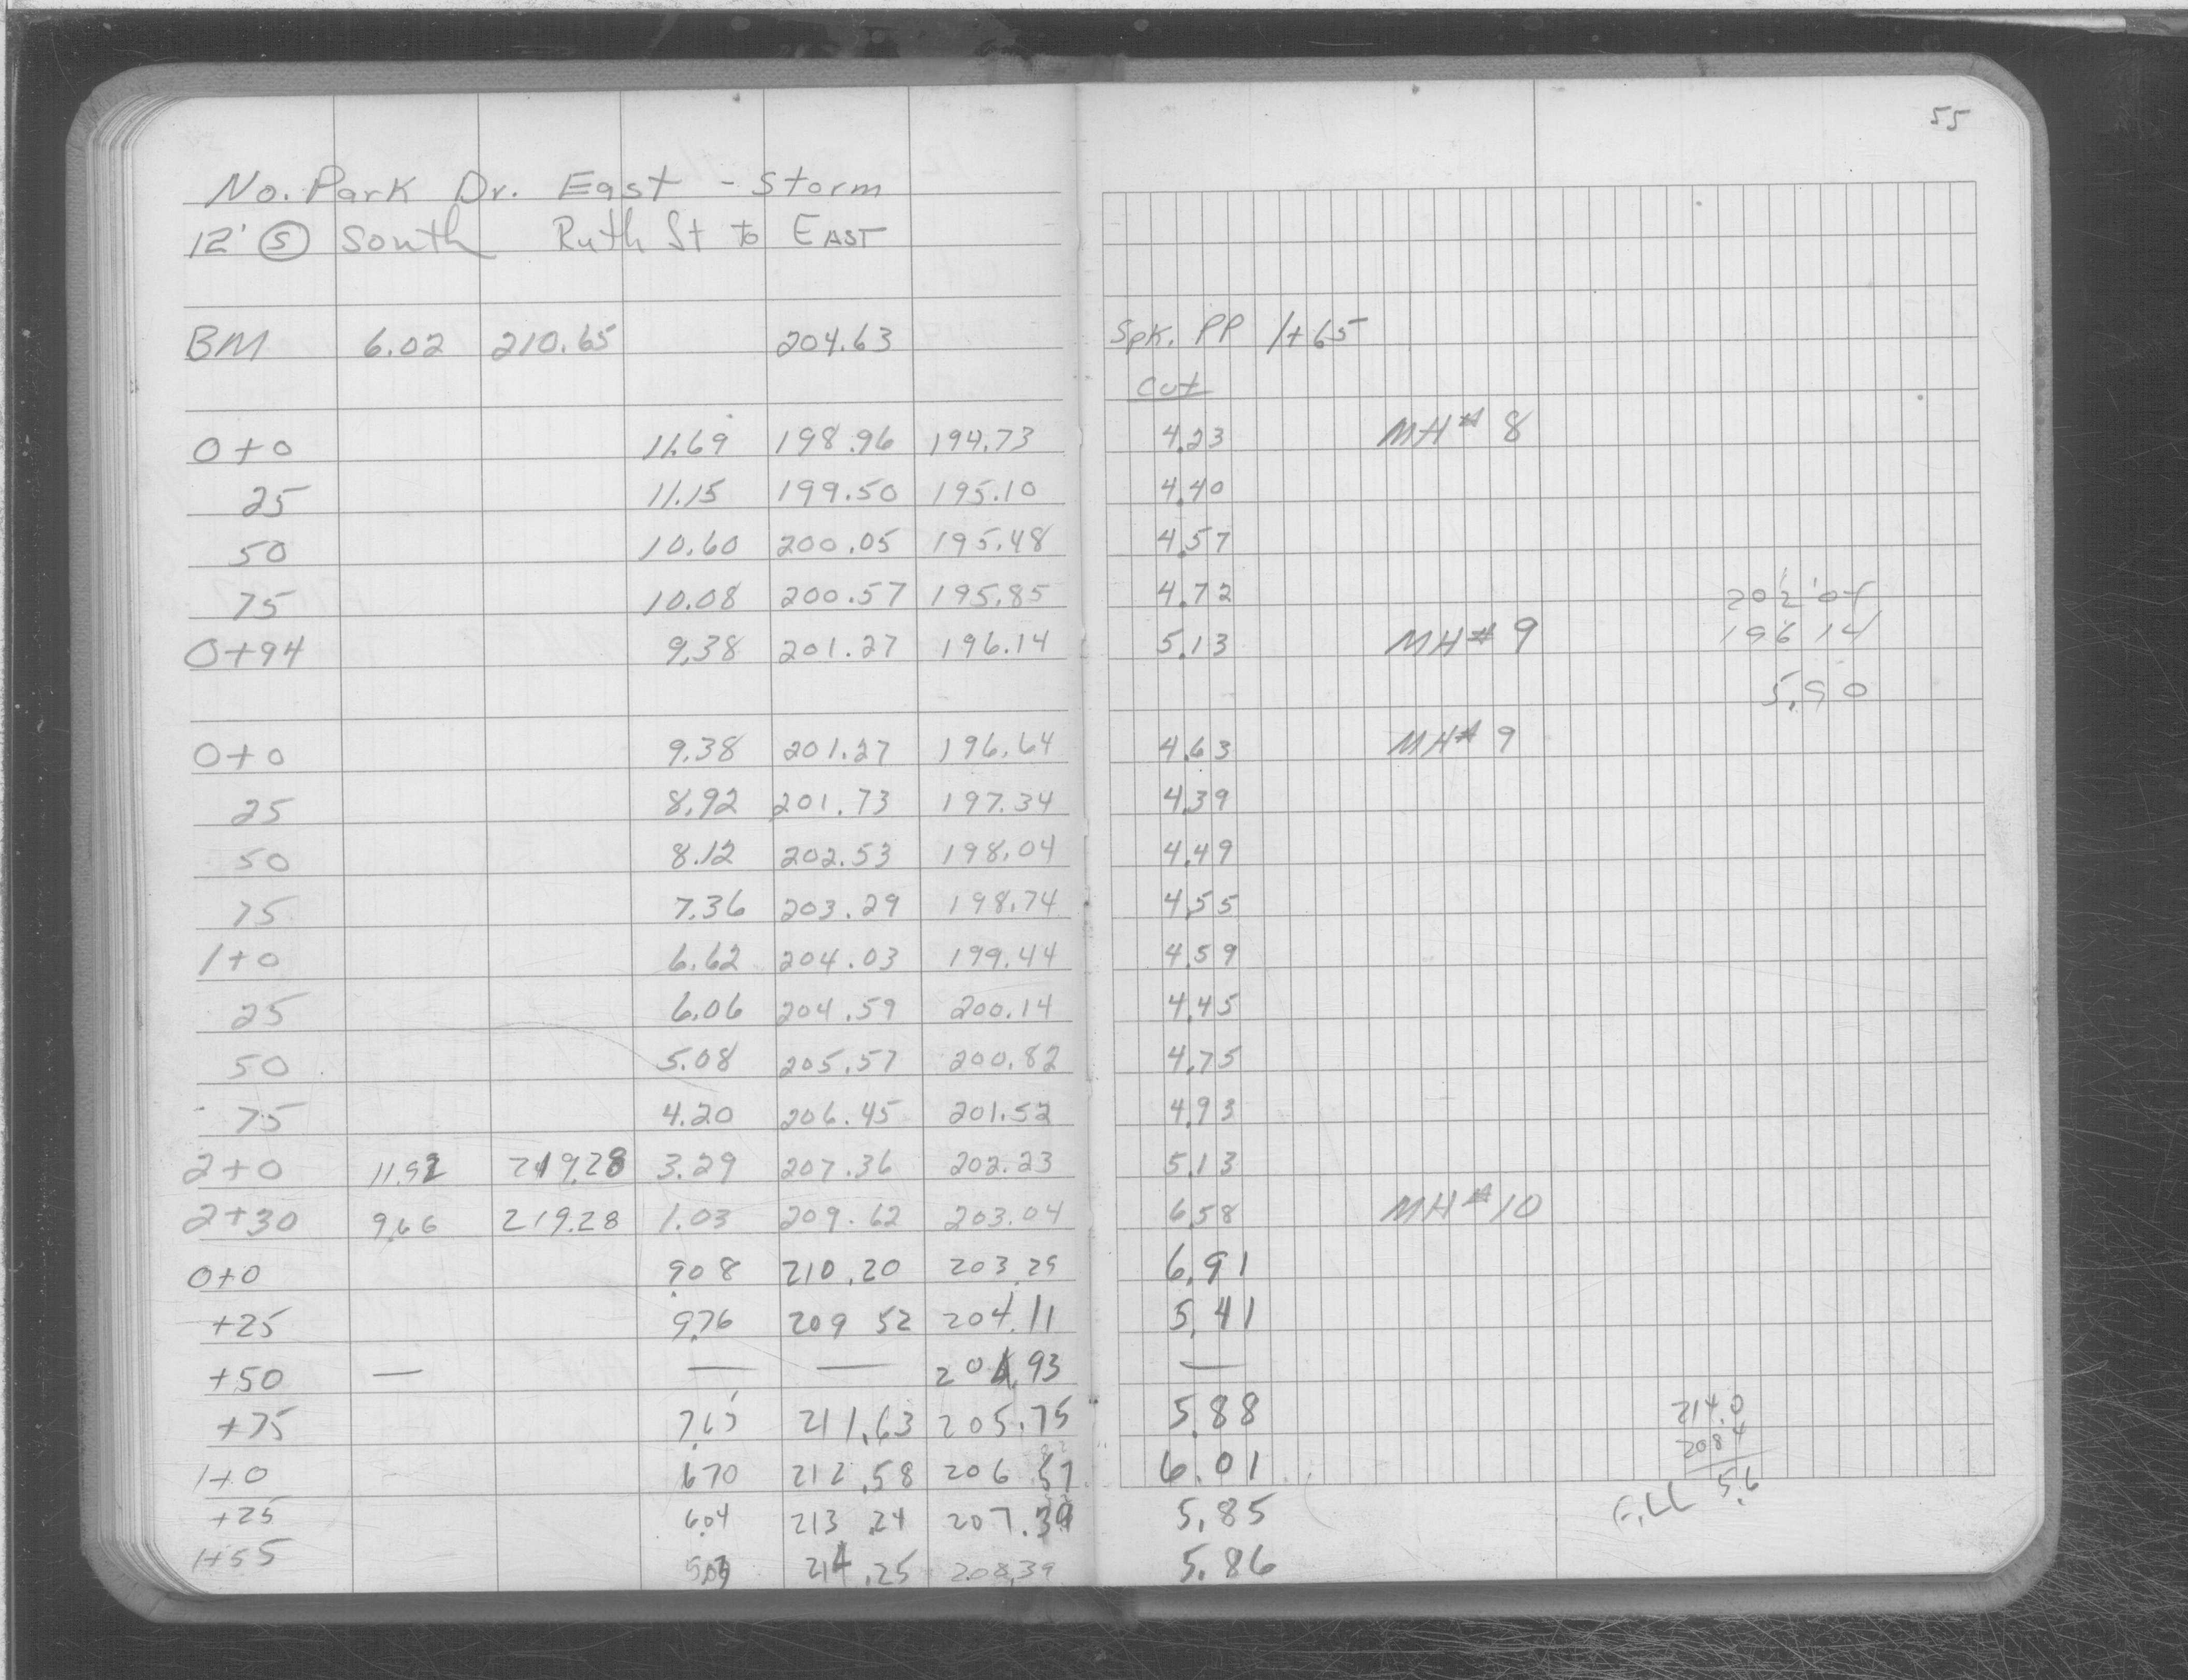 55
No. Park Dr. East - Storm
12' (S) South Ruth St to EAST
BM 6.02 210.65 204.63 Spk. PP 1+65
Cut
0+0 11.69 198.96 194.73 4.23 MH# 8
25 11.15 199.50 195.10 4.40
50 10.60 200.05 195.48 4.57
75 10.08 200.57 195.85 4.72 202 04
0+94 9.38 201.27 196.14 5.13 MH# 9 196 14
5.90
0+0 9.38 201.27 196.64 4.63 MH# 9
25 8.92 201.73 197.34 4.39
50 8.12 202.53 198.04 4.49
75 7.36 203.29 198.74 4.55
1+0 6.62 204.03 199.44 4.59
25 6.06 204.59 200.14 4.45
50 5.08 205.57 200.82 4.75
75 4.20 206.45 201.52 4.93
2+0 11.92 219.28 3.29 207.36 202.23 5.13
2+30 9.66 219.28 1.03 209.62 203.04 6.58 MH# 10
0+0 9.08 210.20 203.29 6.91
+25 9.76 209 52 204.11 5.41
+50 — — — 204.93 —
+75 7.65 211.63 205.75 5.88 214.0
1+0 6.70 212.58 206.57 6.01 208.4
5.6
+25 6.04 213.24 207.39 5.85 Fill
1+55 5.03 214.25 208.39 5.86